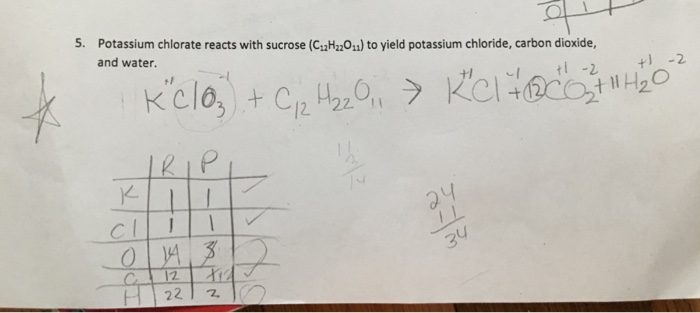 5. Potassium chlorate reacts with sucrose (C₁₂H₂₂O₁₁) to yield potassium chloride, carbon dioxide,
and water.
K⁺¹ClO₃⁻¹ + C₁₂H₂₂O₁₁ → K⁺¹Cl⁻¹ + 12C⁺¹O₂⁻² + 11H₂⁺¹O⁻²
R P
K 1 1 ✓
Cl 1 1 ✓
O 14 3
C 12 ✓
H 22 2
24
11
34